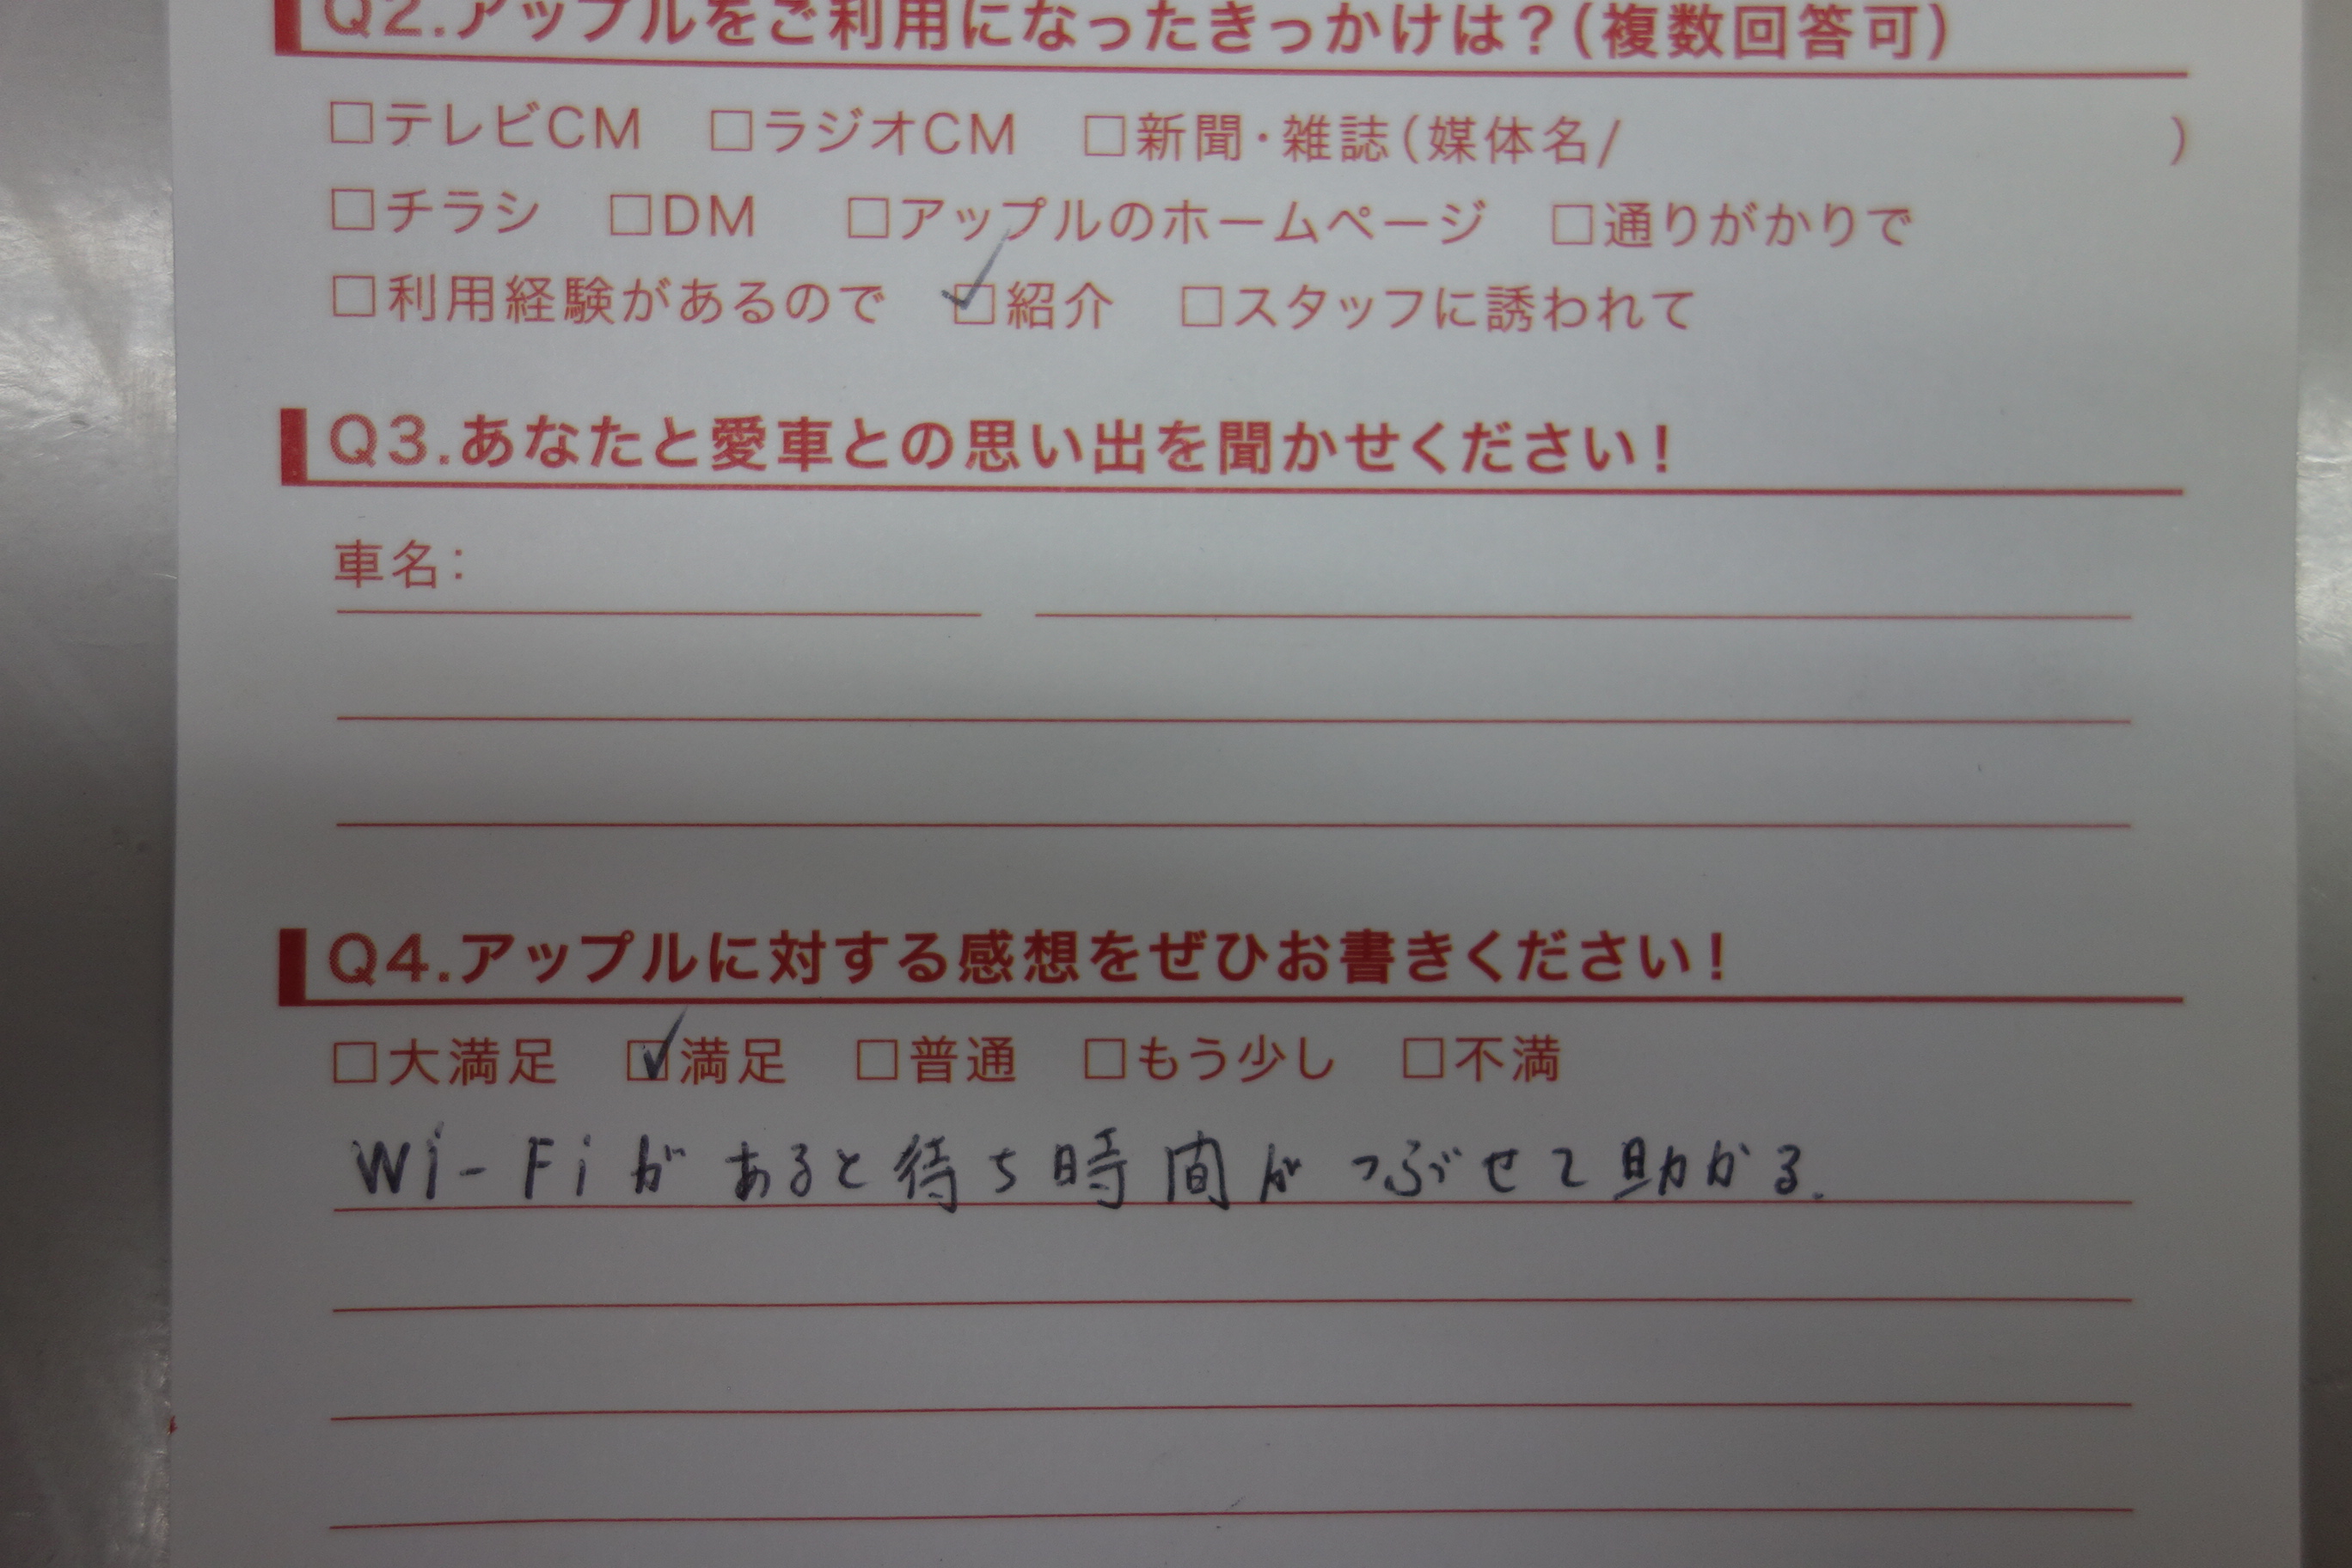 Q2.アップルをご利用になったきっかけは？(複数回答可)
□テレビCM □ラジオCM □新聞・雑誌(媒体名/ )
□チラシ □DM □アップルのホームページ □通りがかりで
□利用経験があるので ☑紹介 □スタッフに誘われて
Q3.あなたと愛車との思い出を聞かせください！
車名：
Q4.アップルに対する感想をぜひお書きください！
□大満足 ☑満足 □普通 □もう少し □不満
Wi-Fiがあると待ち時間がつぶせて助かる.